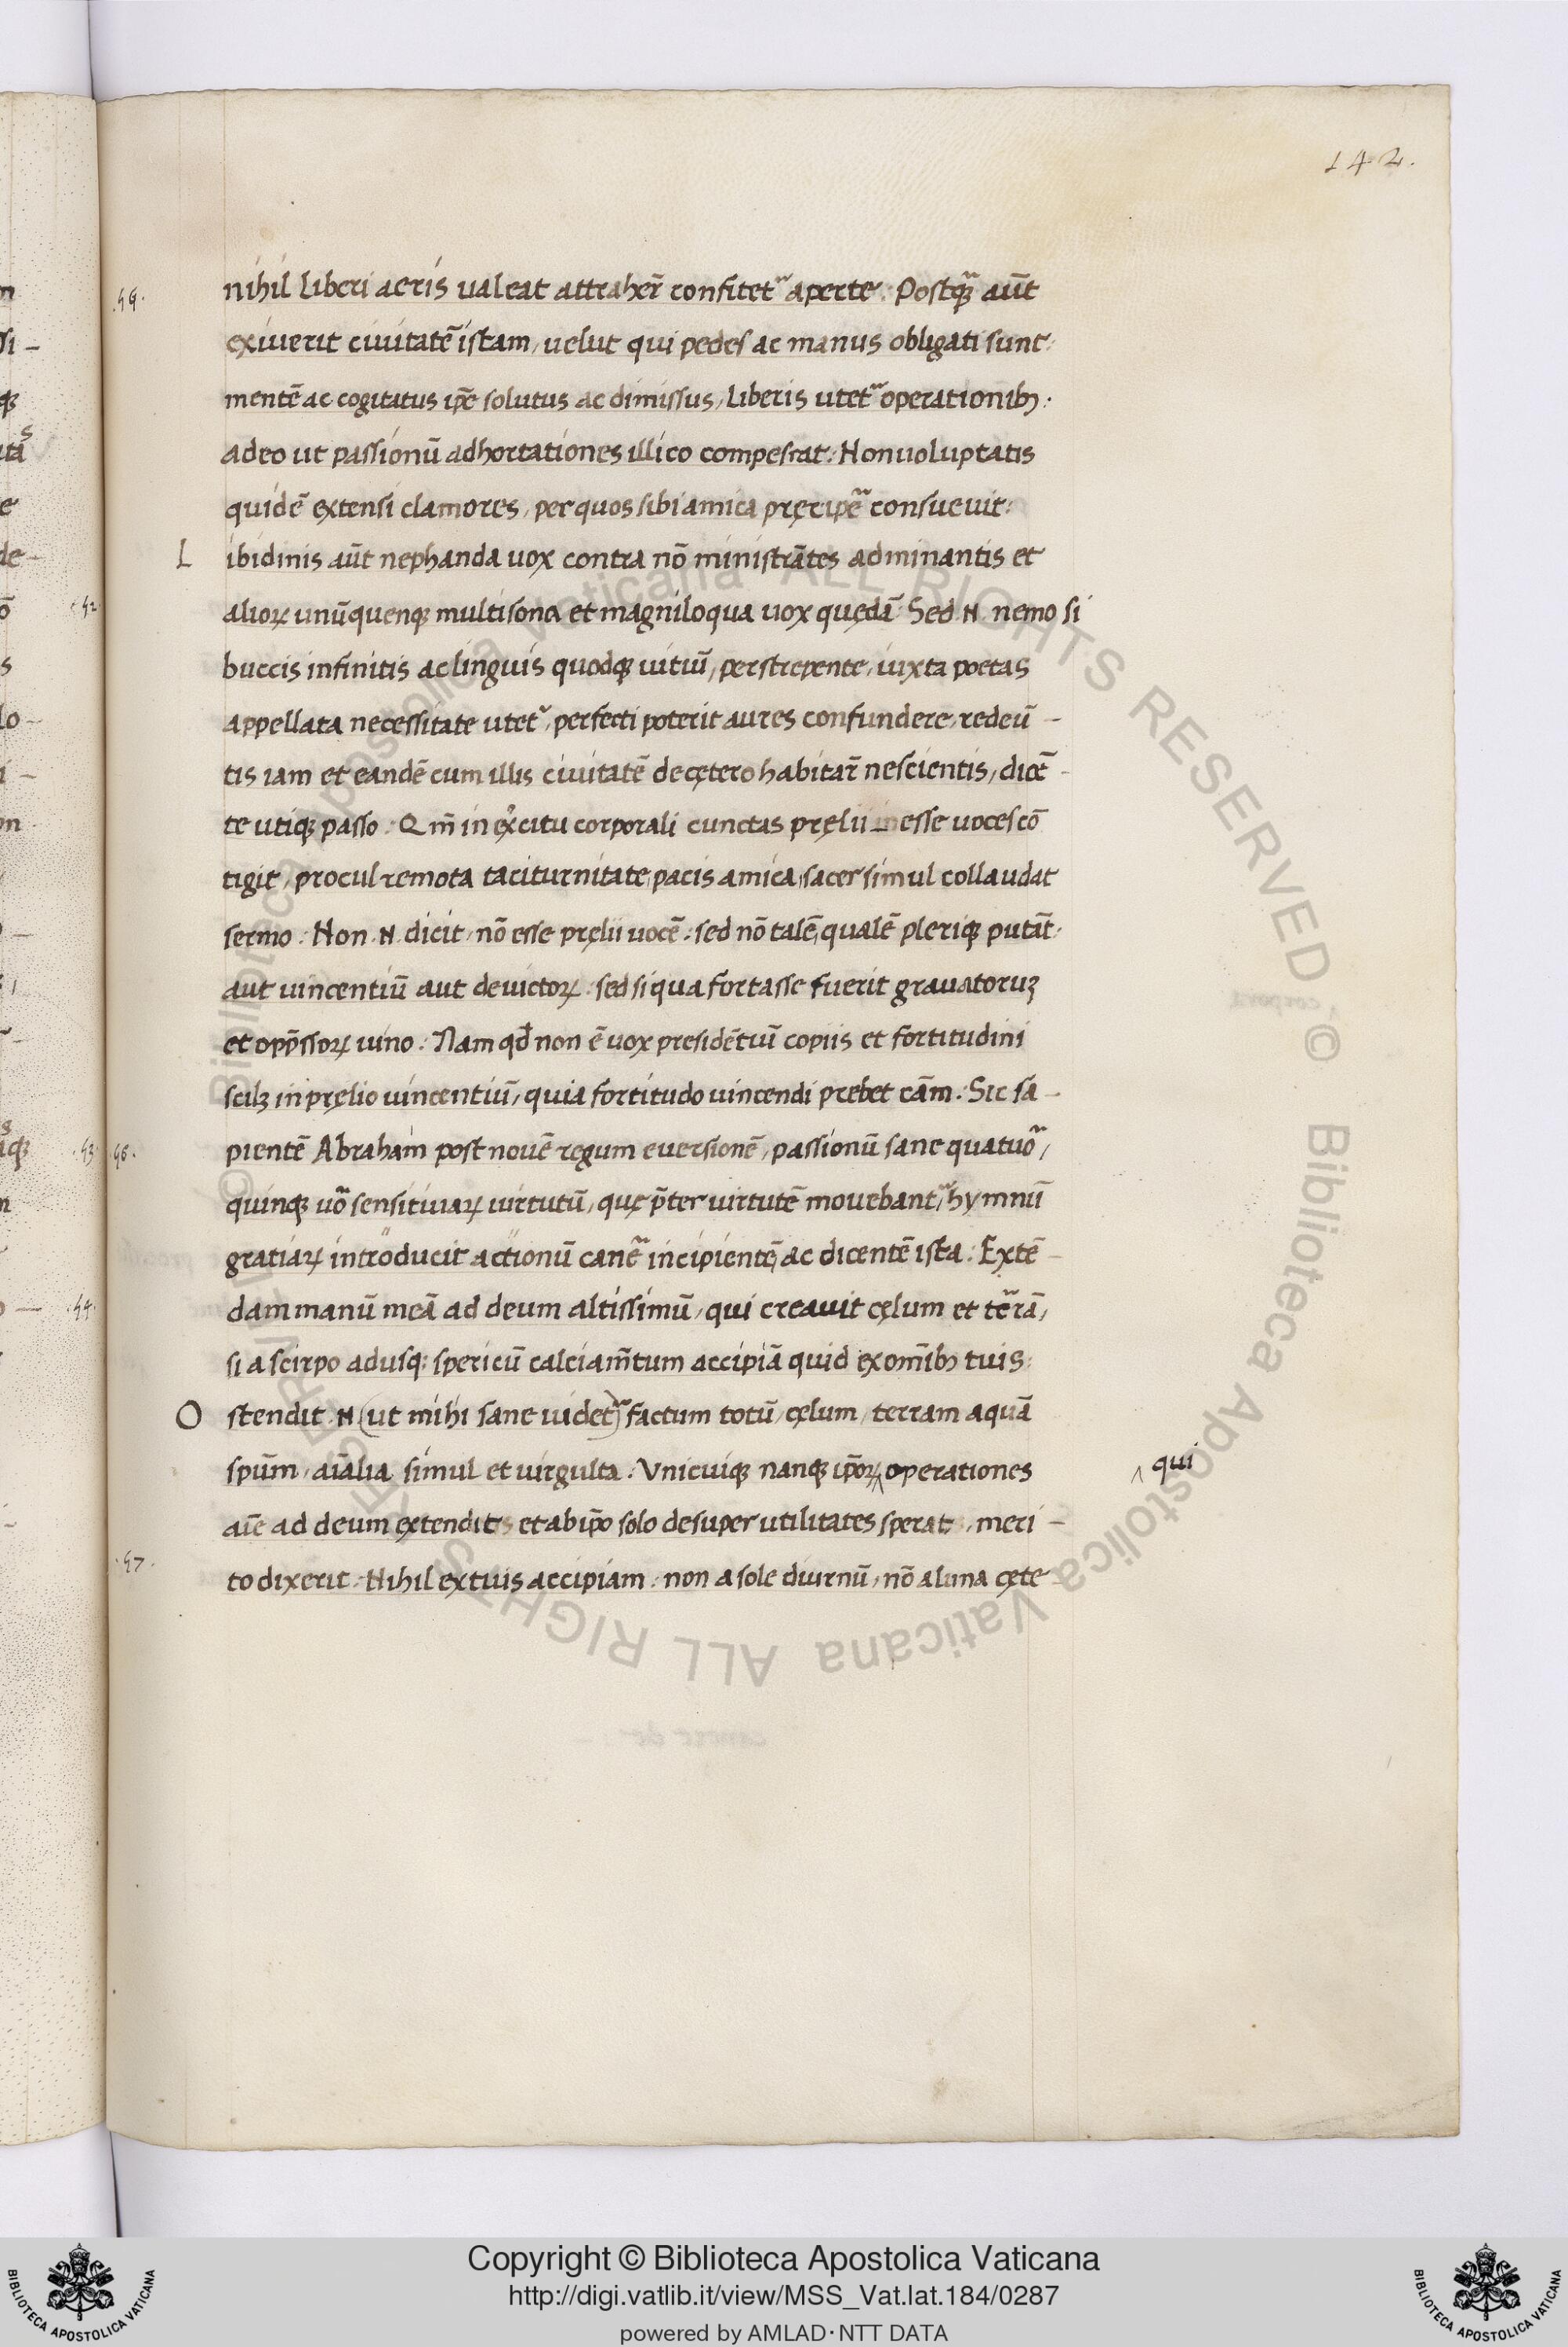 142.
.44. nihil liberi aeris ualeat attraher̄ confitet᷑ aperte: Postqꝫ᷑ aūt
exiuerit ciuitatē istam, uelut qui pedes ac manus obligati sunt:
mentē ac cogitatus ip̄e solutus ac dimissus, liberis utet᷑ operationibꝫ:
adeo ut passionū adhortationes illico compescat: Non uoluptatis
quidē extensi clamores, per quos sibi amica pręripe᷑ consueuit:
L ibidinis aūt nephanda uox contra nō ministrātes adminantis et
alioꝝ unūquenqꝫ multisona et magniloqua uox quędā: Sed .N. nemo si
buccis infinitis ac linguis quodqꝫ uitiū, perstrepente, iuxta poetas
appellata necessitate utet᷑, perfecti poterit aures confundere, redeū –
tis iam et eandē cum illis ciuitatē de cętero habitar̄ nescientis, dicē –
te utiqꝫ passo: Qm̄ in ex̓citu corporali cunctas pręlii inesse uoces cō
tigit, procul remota taciturnitate, pacis amica, sacer simul collaudat
sermo: Non .N. dicit, nō esse pręlii uocē: sed nō talē, qualē pleriqꝫ putāt:
aut uincentiū aut deuictoꝝ: sed si qua fortasse fuerit grauatoruꝫ
et opp̄ssoꝝ uino: Nam qđ non ē uox presidētiū copiis et fortitudini
scilꝫ in pręlio uincentiū, quia fortitudo uincendi prebet cām: Sic sa –
.46. pientē Abraham post nouē regum euersionē, passionū sane quatuo᷑,
quinqꝫ uō sensitiuaꝝ uirtutū, quę p̄ter uirtutē mouebant᷑, hymnū
gratiaꝝ introducit actionū cane᷑ incipientē, ac dicentē ista: Extē –
dam manū meā ad deum altissimū, qui creauit cęlum et te᷑rā,
si a scirpo adusqꝫ spericū calciam̄tum accipiā quid ex om̄ibꝫ tuis:
O stendit .N. (ut mihi sane uidet᷑) factum totū, cęlum, terram aquā
spūm, aīalia simul et uirgulta: Vnicuiqꝫ nanqꝫ ip̄oꝝ ‸ operationes ‸ qui
aīe ad deum extendit et ab ip̄o solo desuper utilitates sperat, meri –
.47. to dixerit: Nihil ex tuis accipiam: non a sole diurnū, nō a luna cęte
Copyright © Biblioteca Apostolica Vaticana
http://digi.vatlib.it/view/MSS_Vat.lat.184/0287
powered by AMLAD·NTT DATA
BIBLIOTECA APOSTOLICA VATICANA
BIBLIOTECA APOSTOLICA VATICANA
© Biblioteca Apostolica Vaticana ALL RIGHTS RESERVED © Biblioteca Apostolica Vaticana ALL RIGHTS RESERVED